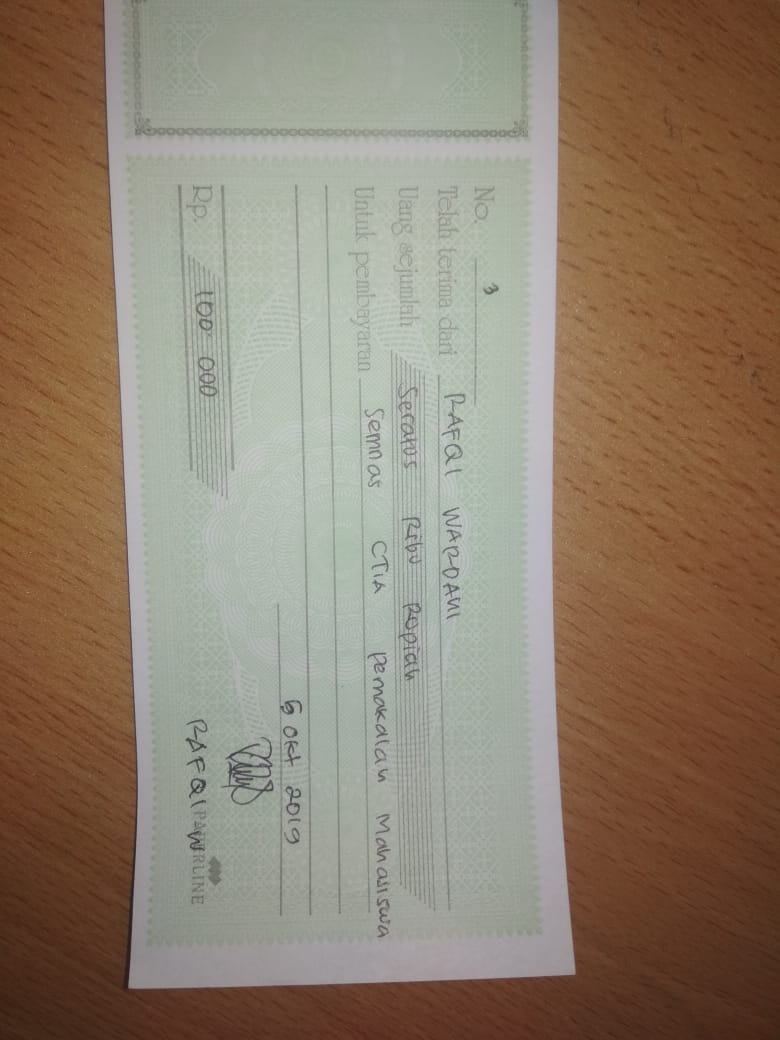 No. 3
Telah terima dari RAFQI WARDANI
Uang sejumlah Seratus Ribu Rupiah
Untuk pembayaran Semnas CTIA pemakalah Mahasiswa
5 Okt 2019
Rp. 100.000
RAFQI W
PAPERLINE